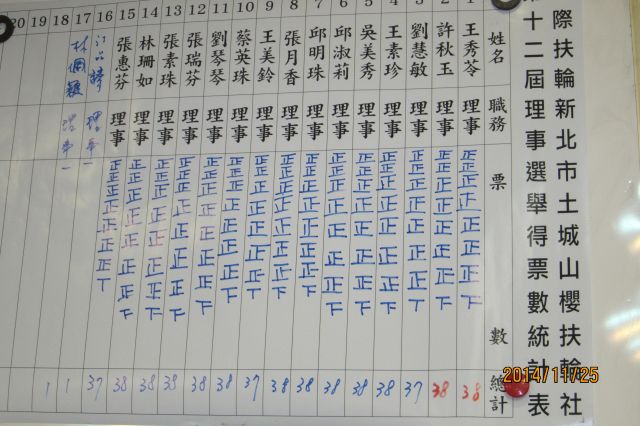 際扶輪新北市土城山櫻扶輪社
十二屆理事選舉得票數統計表
姓名 職務 票 數 總計
1 王秀苓 理事 正正正正正正正下 38
2 許秋玉 理事 正正正正正正正下 38
3 劉慧敏 理事 正正正正正正正丅 37
4 王素珍 理事 正正正正正正正下 38
5 吳美秀 理事 正正正正正正正下 38
6 邱淑莉 理事 正正正正正正正下 38
7 邱明珠 理事 正正正正正正正下 38
8 張月香 理事 正正正正正正正下 38
9 王美鈴 理事 正正正正正正正丅 37
10 蔡英珠 理事 正正正正正正正下 38
11 劉琴琴 理事 正正正正正正正下 38
12 張瑞芬 理事 正正正正正正正下 38
13 張素珠 理事 正正正正正正正下 38
14 林珊如 理事 正正正正正正正下 38
15 張惠芬 理事 正正正正正正正丅 37
16 理事 一 1
17 林 理事 一 1
18
19
20
2014/11/25